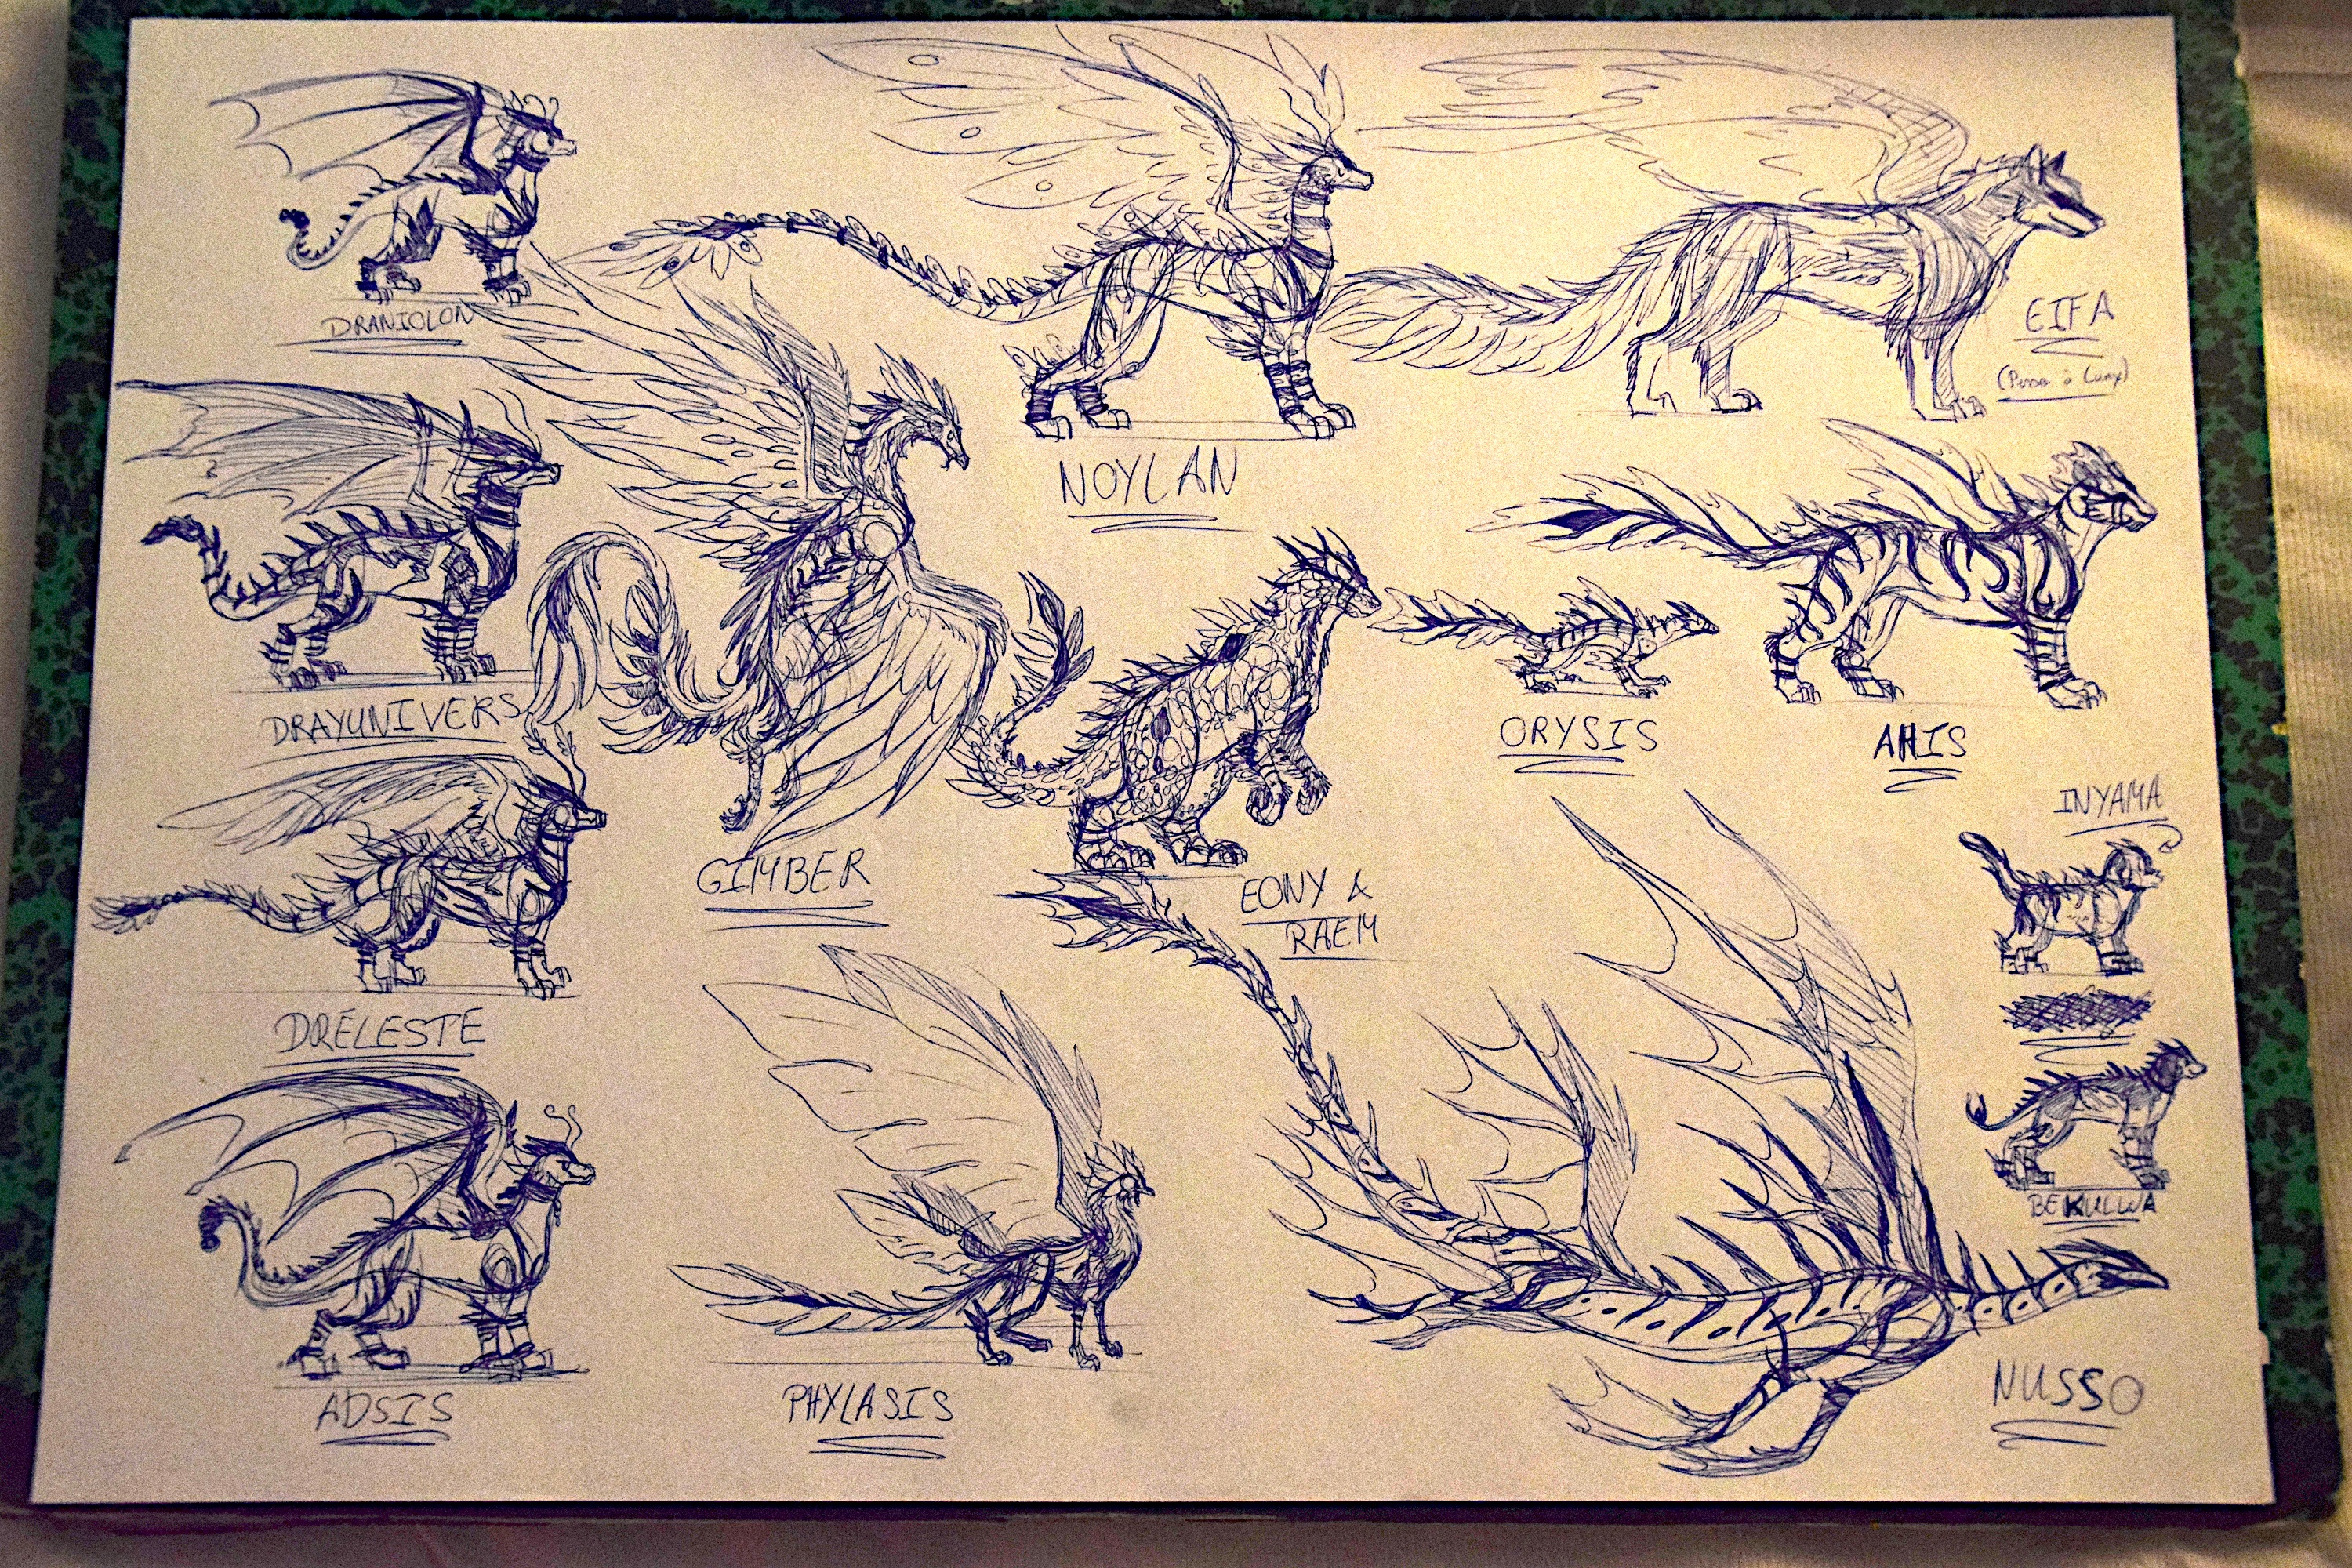 DRANIOLON
EIFA
NOYLAN
DRAYUNIVERS
ORYSIS
AHIS
INYAMA
GIMBER
EONY &
RAEM
DRÉLESTE
BEKULWA
ADSIS
PHYLASIS
NUSSO